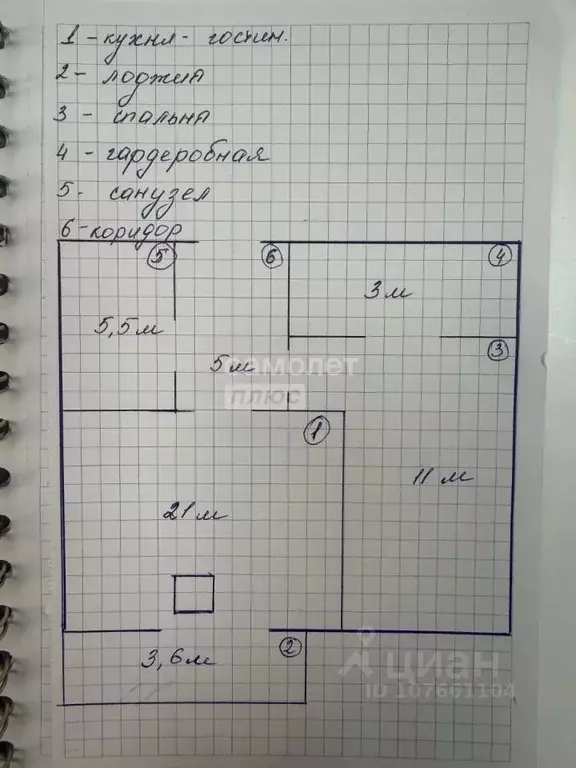 1 - кухня - гостин.
2 - лоджия
3 - спальня
4 - гардеробная
5 - санузел
6 - коридор
5
6
4
3 м
3
5,5 м
5 м
самолет
плюс
1
11 м
21 м
2
3,6 м
циан
ID 107661104